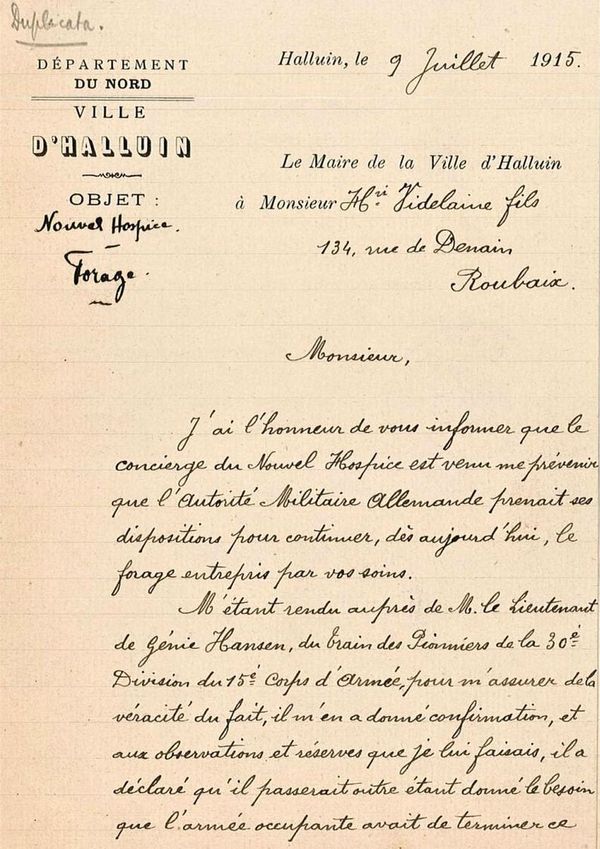 Duplicata.
DÉPARTEMENT
DU NORD
VILLE
D'HALLUIN
OBJET :
Nouvel Hospice.
Forage.
Halluin, le 9 Juillet 1915.
Le Maire de la Ville d'Halluin
à Monsieur Hri Videlaine fils
134, rue de Denain
Roubaix.
Monsieur,
J'ai l'honneur de vous informer que le
concierge du Nouvel Hospice est venu me prévenir
que l'Autorité Militaire Allemande prenait ses
dispositions pour continuer, dès aujourd'hui, le
forage entrepris par vos soins.
M'étant rendu auprès de M. le Lieutenant
de Génie Hansen, du Train des Pionniers de la 30e
Division du 15e Corps d'Armée, pour m'assurer de la
véracité du fait, il m'en a donné confirmation, et
aux observations et réserves que je lui faisais, il a
déclaré qu'il passerait outre étant donné le besoin
que l'armée occupante avait de terminer ce